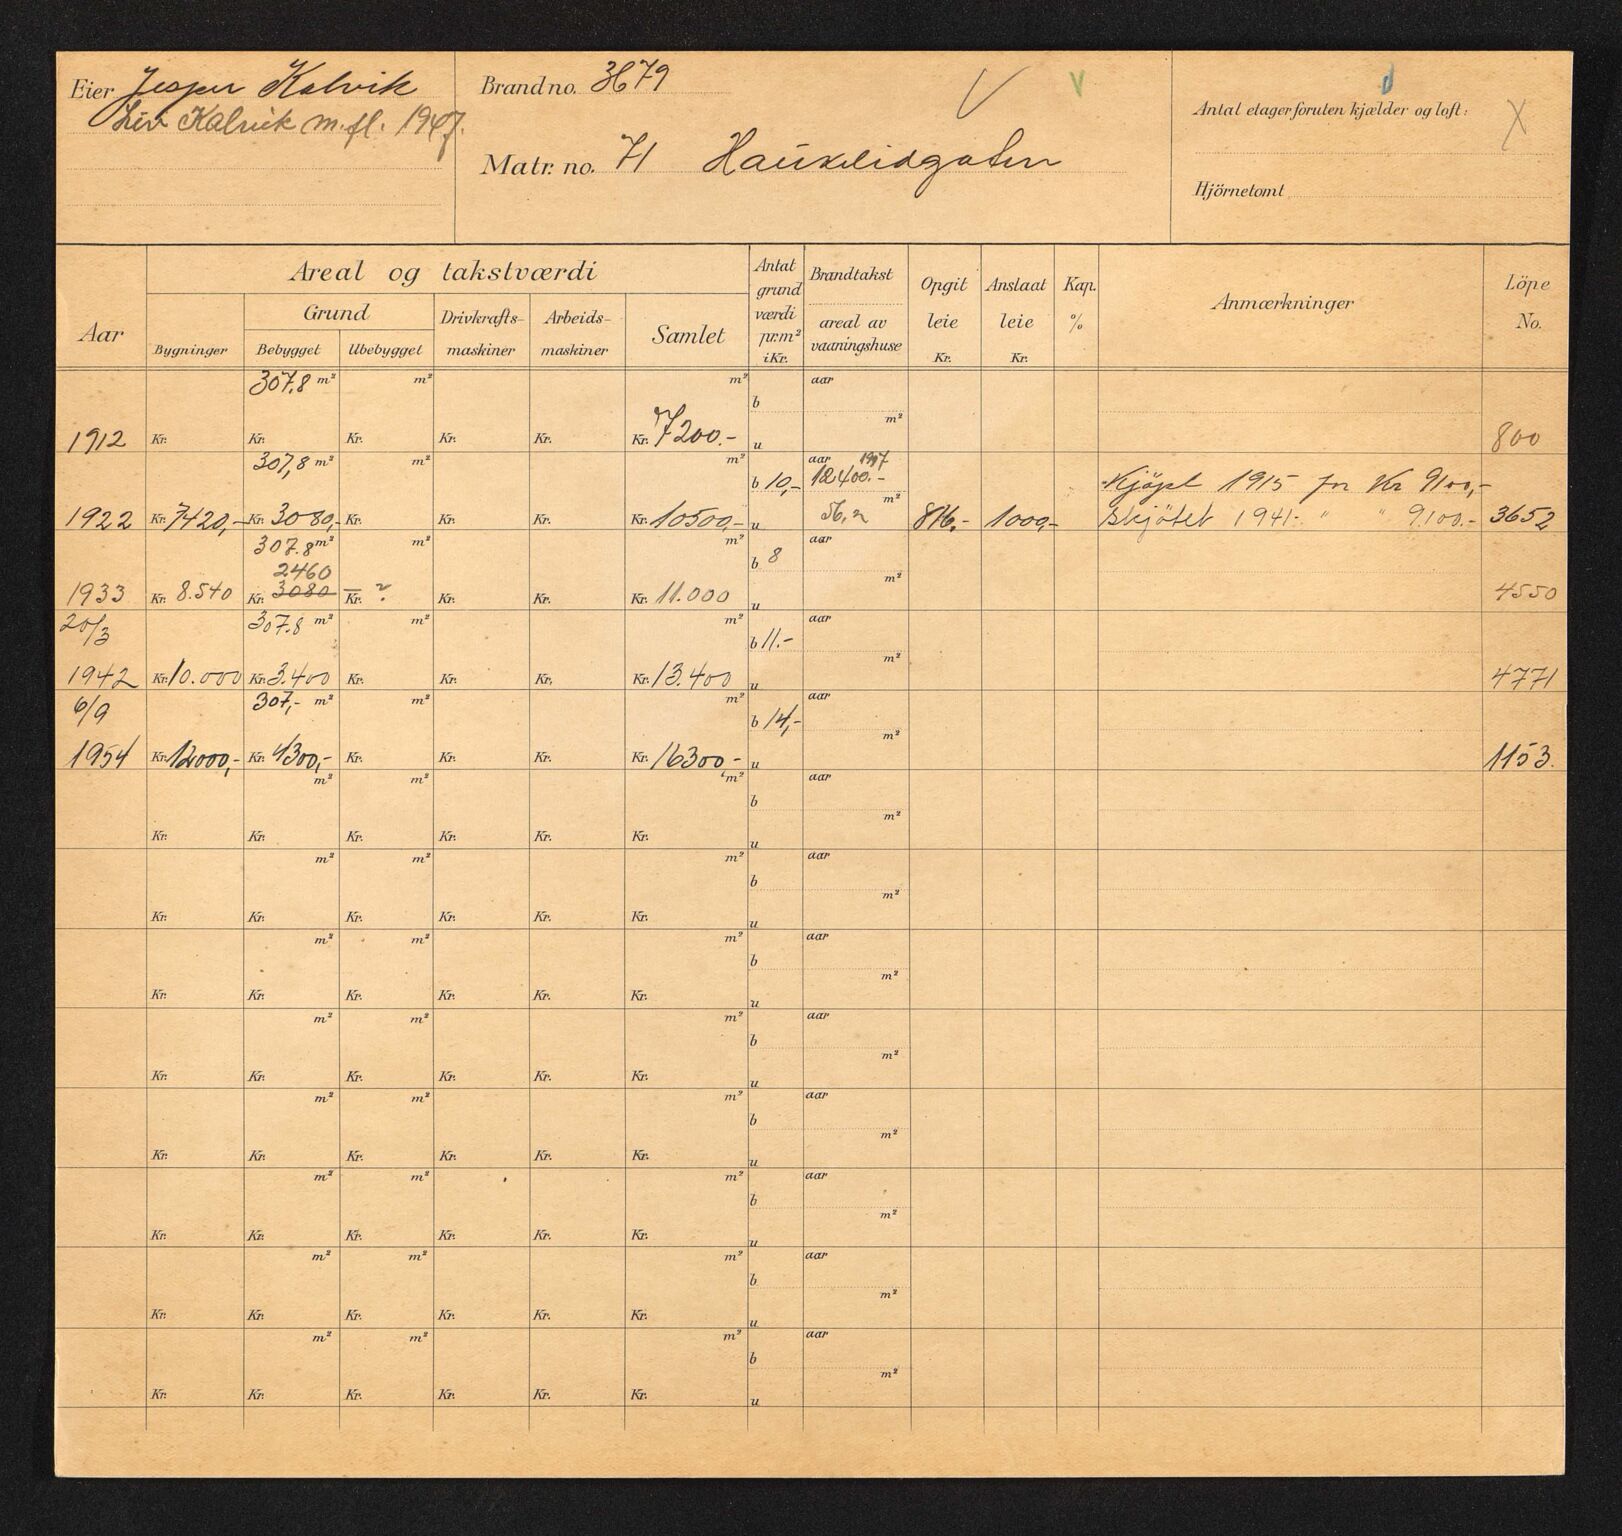 Eier Jesper Kalvik
Liv Kalvik m.fl. 1947.
Brandno. 3679
Matr. no. 71 Haukelidgaten
V V
Antal etager foruten kjælder og loft: X
Hjörnetomt
Aar
Areal og takstværdi
Bygninger
Grund
Bebygget Ubebygget
Drivkrafts-
maskiner
Arbeids-
maskiner
Samlet
Antat
grund
værdi
pr.m²
i Kr.
Brandtakst
areal av
vaaningshuse
Opgit
leie
Kr.
Anslaat
leie
Kr.
Kap.
%
Anmærkninger
Löpe
No.
307.8 m² m² m² aar
b
m²
1912 Kr. Kr. Kr. Kr. Kr. Kr. 7200.- u 800
307,8 m² m² m² aar 1917
b 10,- 12400.- Kjöpt 1915 for Kr 9100,-
m²
1922 Kr. 7420,- Kr. 3080,- Kr. Kr. Kr. Kr. 10500,- u 56,2 816.- 1000,- Skjötet 1941.- " " 9.100.- 3652
307.8 m² m² m² aar
b 8
2460 m²
1933 Kr. 8.540 Kr. 3080 Kr. ? Kr. Kr. Kr. 11.000 u 4550
20/3 307.8 m² m² m² aar
b 11.-
m²
1942 Kr. 10.000 Kr. 3.400 Kr. Kr. Kr. Kr. 13.400 u 4771
6/9 307,- m² m² m² aar
b 14,-
m²
1954 Kr. 12000,- Kr. 4300,- Kr. Kr. Kr. Kr. 16300- u 1153.
m² m² m² aar
b
m²
Kr. Kr. Kr. Kr. Kr. Kr. u
m² m² m² aar
b
m²
Kr. Kr. Kr. Kr. Kr. Kr. u
m² m² m² aar
b
m²
Kr. Kr. Kr. Kr. Kr. Kr. u
m² m² m² aar
b
m²
Kr. Kr. Kr. Kr. Kr. Kr. u
m² m² m² aar
b
m²
Kr. Kr. Kr. Kr. Kr. Kr. u
m² m² m² aar
b
m²
Kr. Kr. Kr. Kr. Kr. Kr. u
m² m² m² aar
b
m²
Kr. Kr. Kr. Kr. Kr. Kr. u
m² m² m² aar
b
m²
Kr. Kr. Kr. Kr. Kr. Kr. u